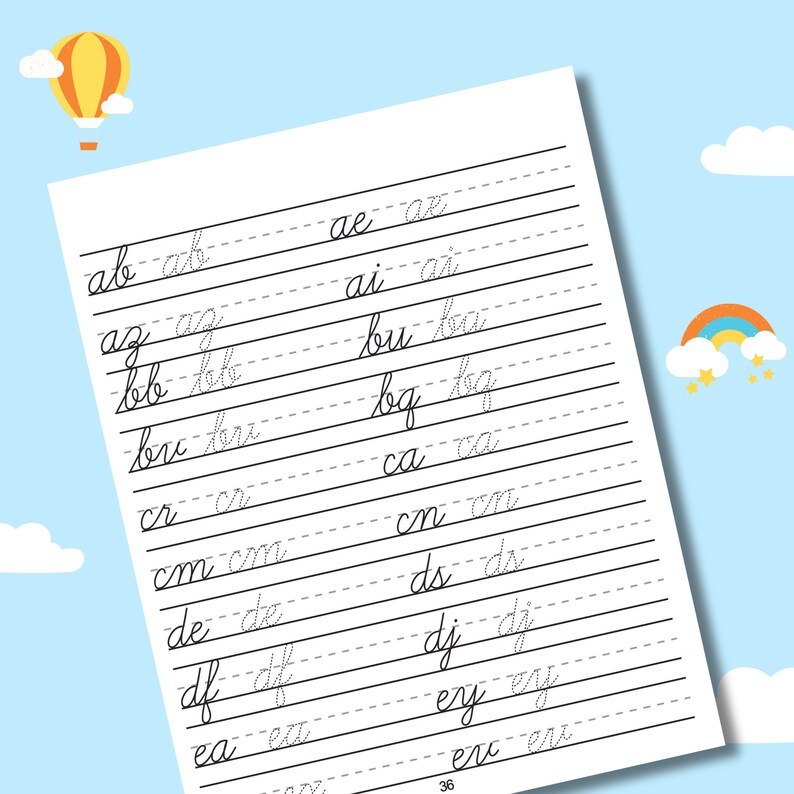 ab ab ae ae
az az ai ai
bb bb bu bu
bv bv bq bq
cr cr ca ca
cm cm cn cn
de de ds ds
df df dj dj
ea ea ey ey
ev ev
36